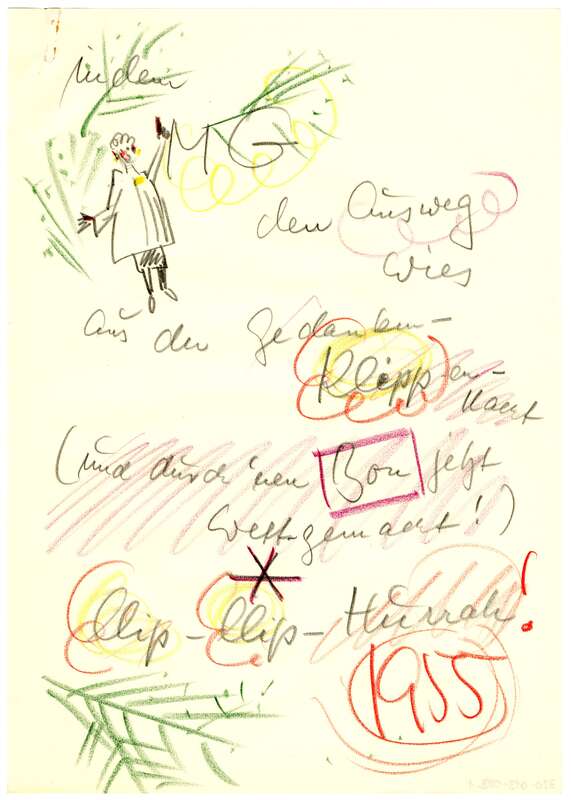 indem
MG
den Ausweg
wies
aus der Gedanken-
Klipp-en-
Nacht
(und durch 'nen Bon jetzt
wett-gemacht!)
Clip - Clip - Hurrah!
1955